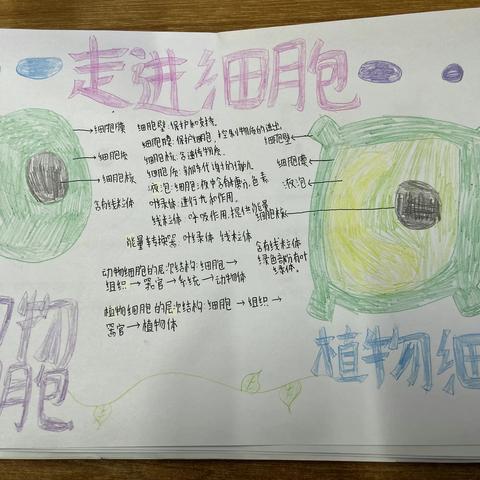 走进细胞
细胞膜
细胞质
细胞核
含有线粒体
细胞壁:保护和支持。
细胞膜:保护细胞,控制物质的进出
细胞核:含遗传物质。
细胞质:新陈代谢的
液泡:细胞液中含糖分,色素
叶绿体:进行光和作用。
线粒体:呼吸作用,提供能量
能量转换器:叶绿体 线粒体
动物细胞的层次结构:细胞→
组织→器官→系统→动物体
植物细胞的层次结构:细胞→组织→
器官→植物体
细胞壁
细胞膜
液泡
细胞核
含有线粒体
绿色部分有叶
绿体。
物
胞
植物细